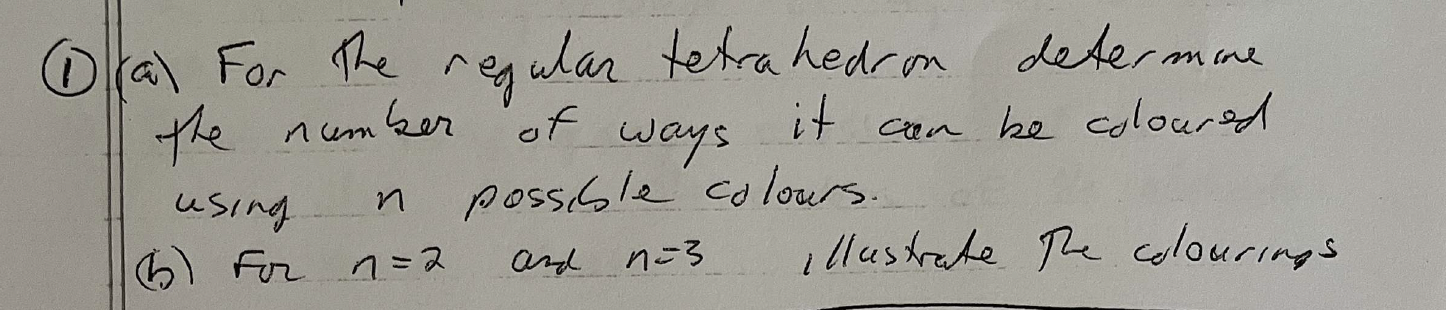 ① (a) For the regular tetrahedron determine
the number of ways it can be coloured
using n possible colours.
(b) For n=2 and n=3 illustrate the colourings